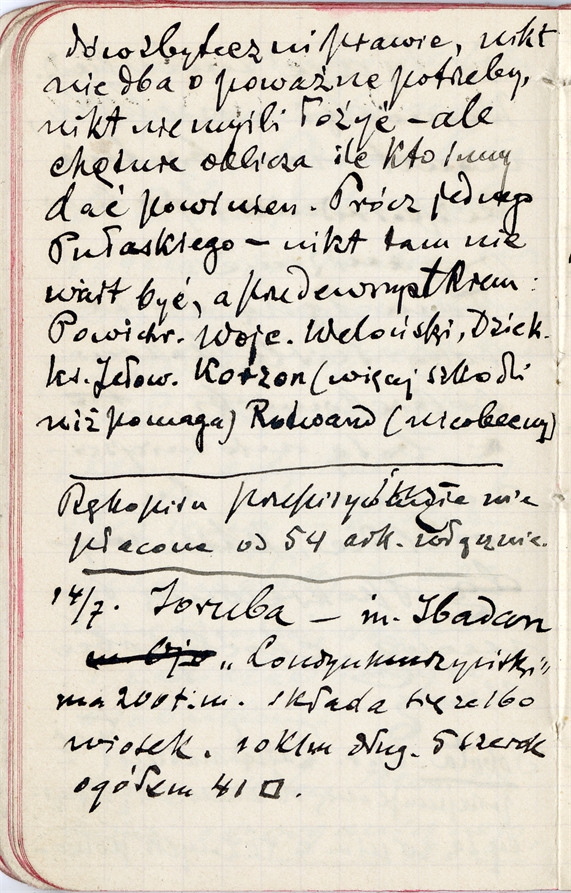 nikt
nie dba o poważne potrzeby,
nikt nie myśli łożyć – ale
chętnie oblicza ile kto inny
dać powinien. Prócz jednego
Pułaskiego – nikt tam nie
wart być, a przedewszyst Krem:
Powichr. Woje. Weloński, Dziek.
ks. Jełow. Korzon (więcej szkodzi
niż pomaga) Rotwand (nieobecny)
Rękopisu nie
płacone od 54 ark. włącznie.
14/7. Joruba – m. Ibadan
"Londyn murzyński"
ma 200 t. m. składa się ze 160
wiosek. 10 klm dług. 5 szerok
ogółem 41 □.